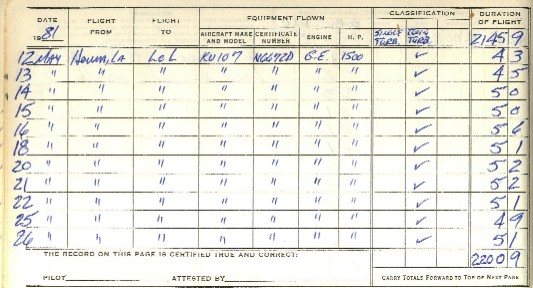 DATE FLIGHT FROM FLIGHT TO EQUIPMENT FLOWN CLASSIFICATION DURATION OF FLIGHT
1981 AIRCRAFT MAKE AND MODEL CERTIFICATE NUMBER ENGINE H. P. SINGLE TURB. TWIN TURB. 2145 9
12 MAY Houm, LA LCL KV107 N6672D G.E. 1500 ✓ 4 3
13 " " " " " " " ✓ 4 5
14 " " " " " " " ✓ 5 0
15 " " " " " " " ✓ 5 0
16 " " " " " " " ✓ 5 6
18 " " " " " " " ✓ 5 1
20 " " " " " " " ✓ 5 2
21 " " " " " " " ✓ 5 2
22 " " " " " " " ✓ 5 1
25 " " " " " " " ✓ 4 9
26 " " " " " " " ✓ 5 1
THE RECORD ON THIS PAGE IS CERTIFIED TRUE AND CORRECT: 2200 9
PILOT ATTESTED BY CARRY TOTALS FORWARD TO TOP OF NEXT PAGE